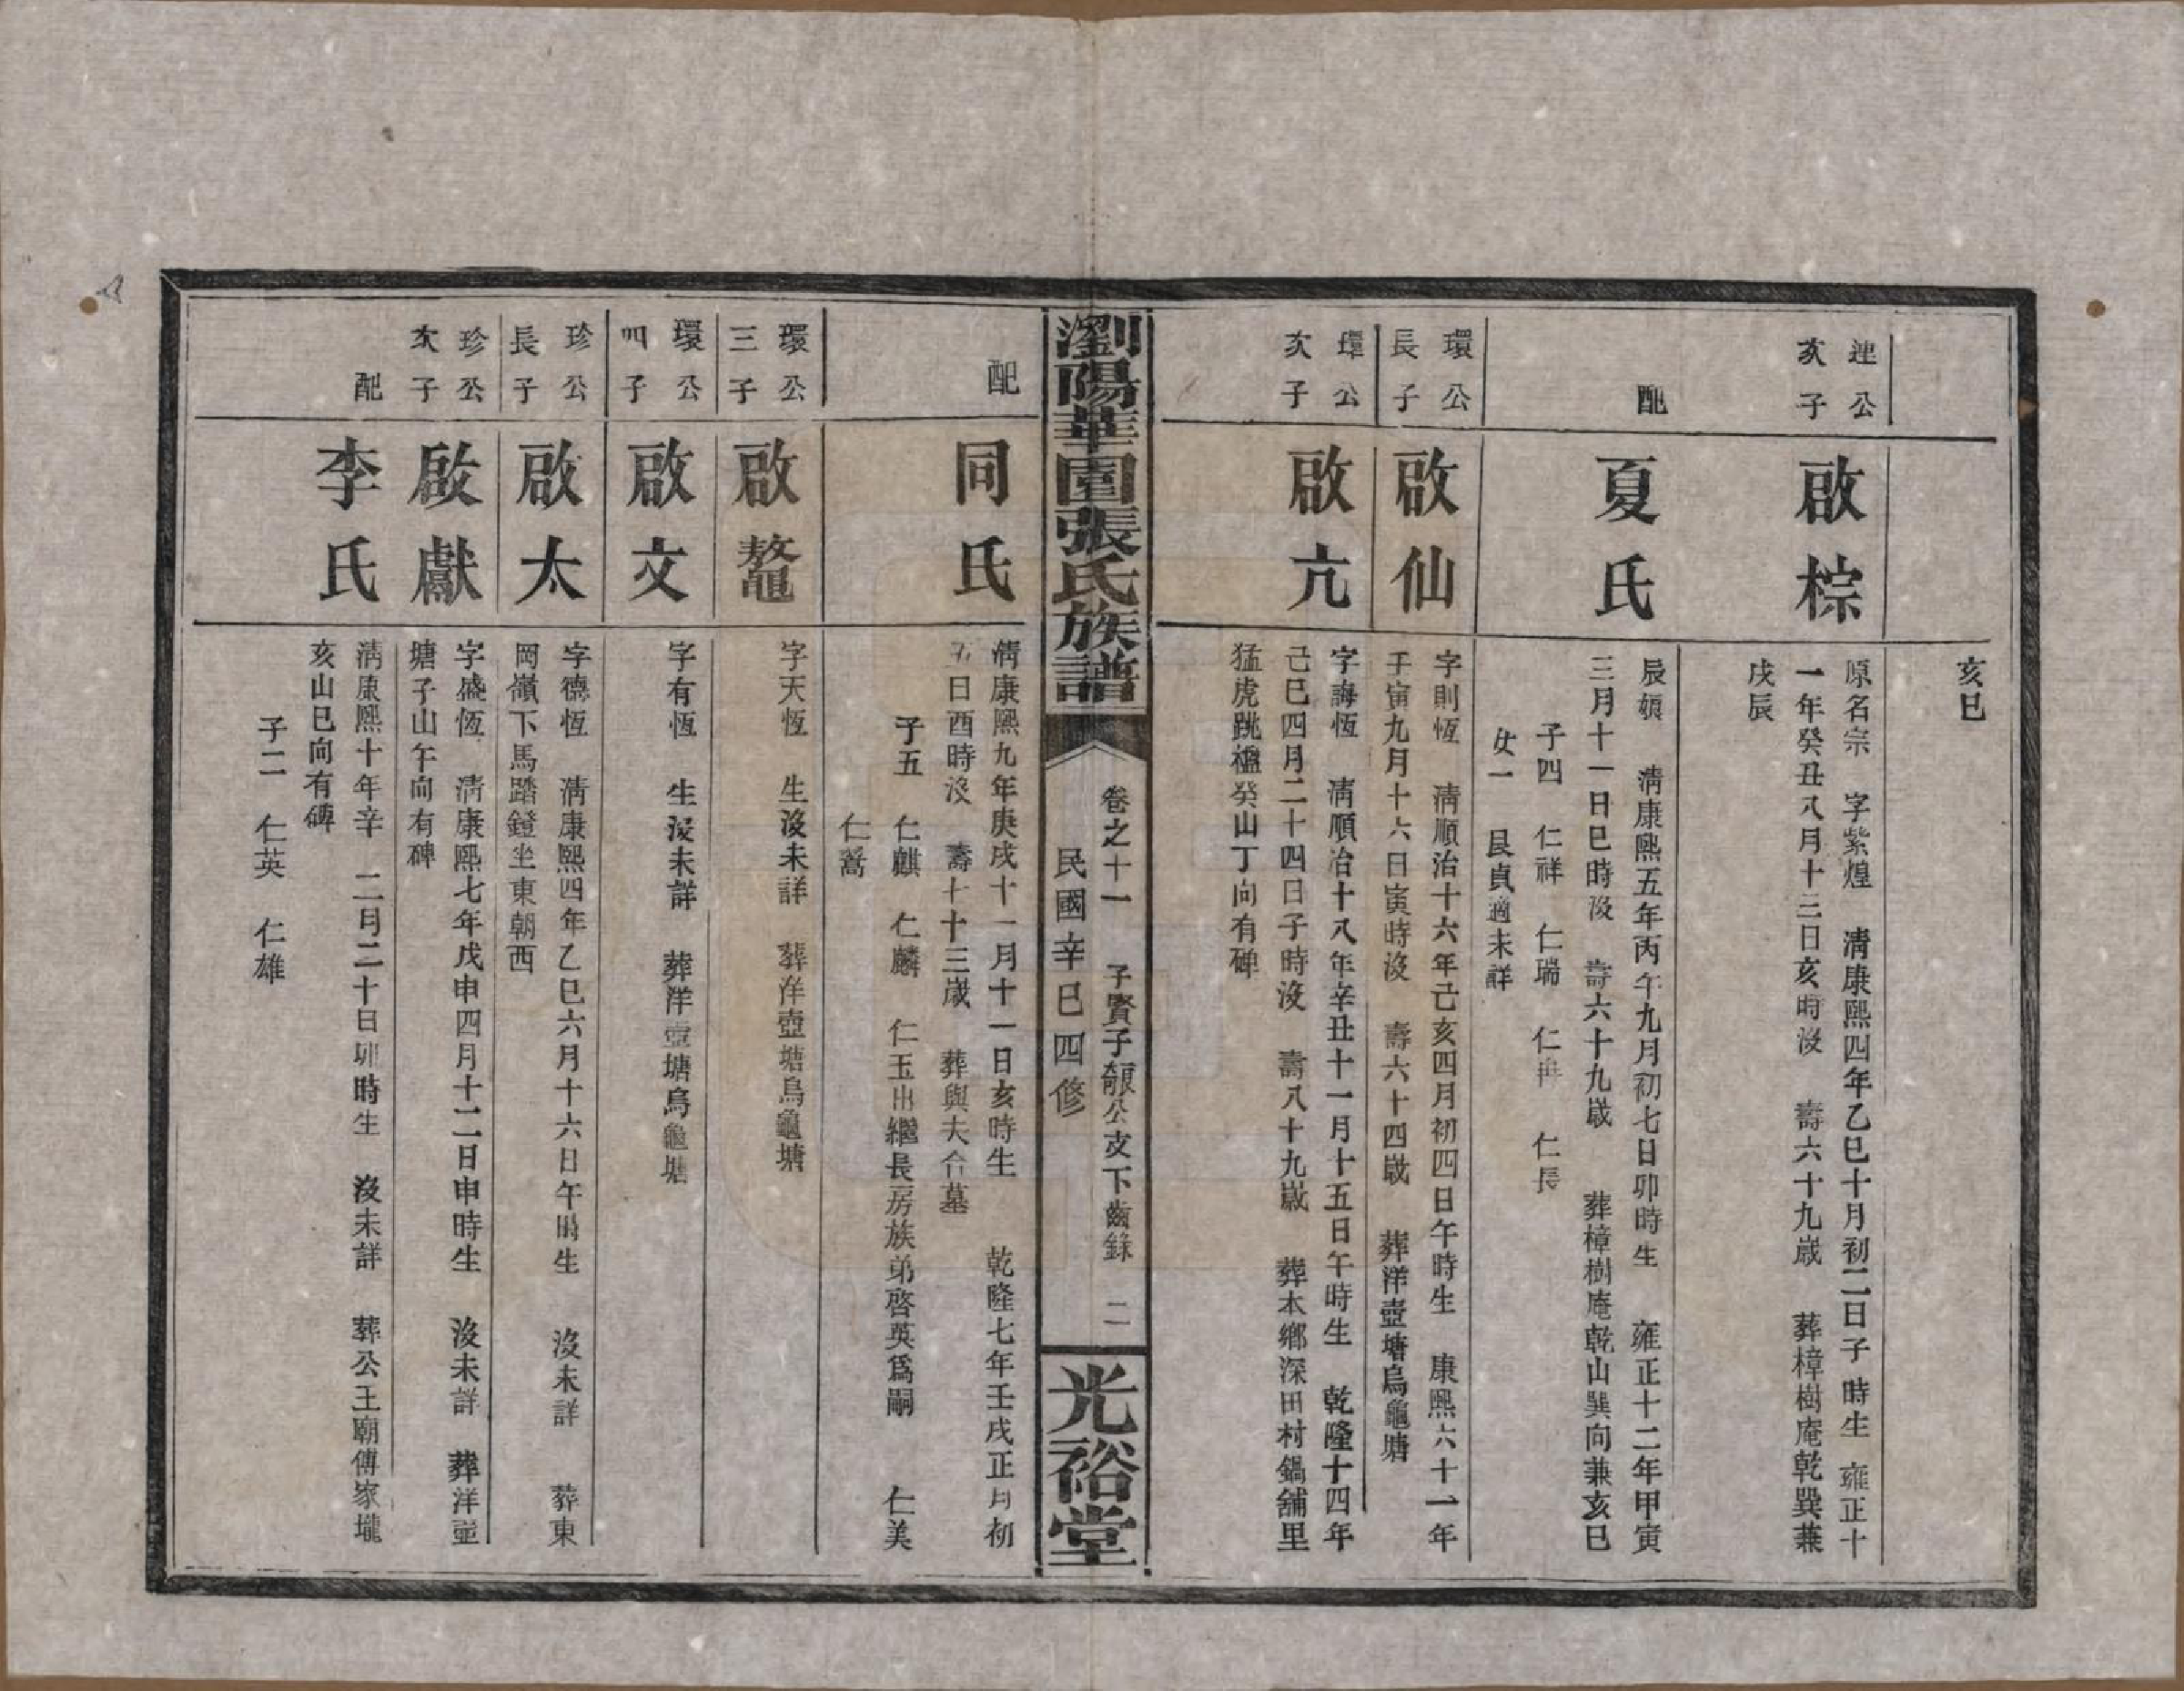 亥巳
連公
次子
啟棕
原名宗　字紫煌　清康熙四年乙巳十月初二日子時生　雍正十
一年癸丑八月十三日亥時沒　壽六十九歲　葬樟樹庵乾巽兼
戌辰
配
夏氏
辰媍　清康熙五年丙午九月初七日卯時生　雍正十二年甲寅
三月十一日巳時沒　壽六十九歲　葬樟樹庵乾山巽向兼亥巳
子四　仁祥　仁瑞　仁冉　仁長
女一　艮貞適未詳
環公
長子
啟仙
字則恆　清順治十六年己亥四月初四日午時生　康熙六十一年
壬寅九月十六日寅時沒　壽六十四歲　葬洋壺塘烏龜塘
環公
次子
啟亢
字誨恆　清順治十八年辛丑十一月十五日午時生　乾隆十四年
己巳四月二十四日子時沒　壽八十九歲　葬本鄉深田村鍋舖里
猛虎跳𣞙癸山丁向有碑
瀏陽華園張氏族譜
卷之十一　子賢子服公支下齒錄　二
民國辛巳四修
光裕堂
配
同氏
清康熙九年庚戌十一月十一日亥時生　乾隆七年壬戌正月初
五日酉時沒　壽七十三歲　葬與夫合墓
子五　仁麒　仁麟　仁玉出繼長房族弟啓英爲嗣　仁美
仁嵩
環公
三子
啟鼇
字天恆　生沒未詳　葬洋壺塘烏龜塘
環公
四子
啟文
字有恆　生沒未詳　葬洋壺塘烏龜塘
珍公
長子
啟太
字德恆　清康熙四年乙巳六月十六日午時生　沒未詳　葬東
岡嶺下馬踏鐙坐東朝西
珍公
次子
啟獻
字盛恆　清康熙七年戊申四月十二日申時生　沒未詳　葬洋壺
塘子山午向有碑
配
李氏
清康熙十年辛　二月二十日卯時生　沒未詳　葬公王廟傅家壠
亥山巳向有碑
子二　仁英　仁雄